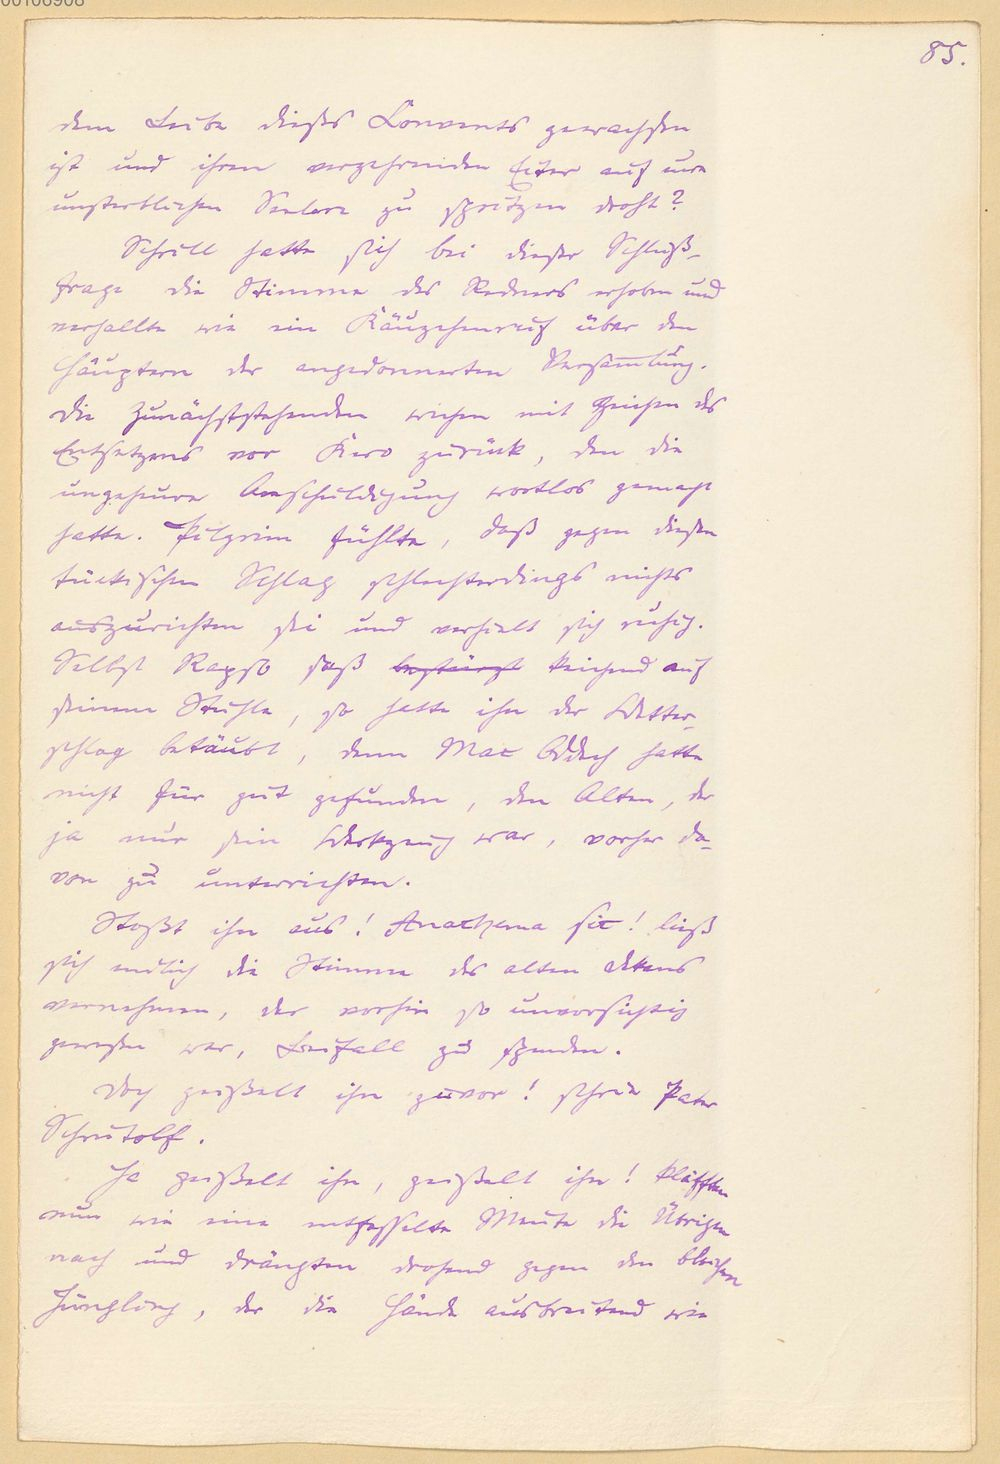 85.
dem Leibe dieses Convents gewachsen
ist und ihren verzehrenden Eiter auf eure
unsterblichen Seelen zu spritzen droht?
Schrill hatte sich bei dieser Schluß-
frage die Stimme des Redners erhoben und
verhallte wie ein Käuzchenruf über den
Häuptern der angedonnerten Versammlung.
Die Zunächststehenden wichen mit Zeichen des
Entsetzens vor Kero zurück, den die
ungeheure Anschuldigung wortlos gemacht
hatte. Pilgrim fühlte, daß gegen diesen
tückischen Schlag schlechterdings nichts
auszurichten sei und verhielt sich ruhig.
Selbst Rapso saß bestürzt keichend auf
seinem Stuhle, so hatte ihn der Wetter-
schlag betäubt, denn Mac Oddach hatte
nicht für gut gefunden, den Alten, der
ja nur sein Werkzeug war, vorher da-
von zu unterrichten.
Stoßt ihn aus! Anathema sit! ließ
sich endlich die Stimme des alten Dekans
vernehmen, der vorhin so unvorsichtig
gewesen war, Beifall zu spenden.
Doch geißelt ihn zuvor! schrie Pater
Schrutolf.
Ja geißelt ihn, geißelt ihn! kläfften
nun wie eine entfesselte Meute die Übrigen
nach und drängten drohend gegen den bleichen
Jüngling, der die Hände ausbreitend wie